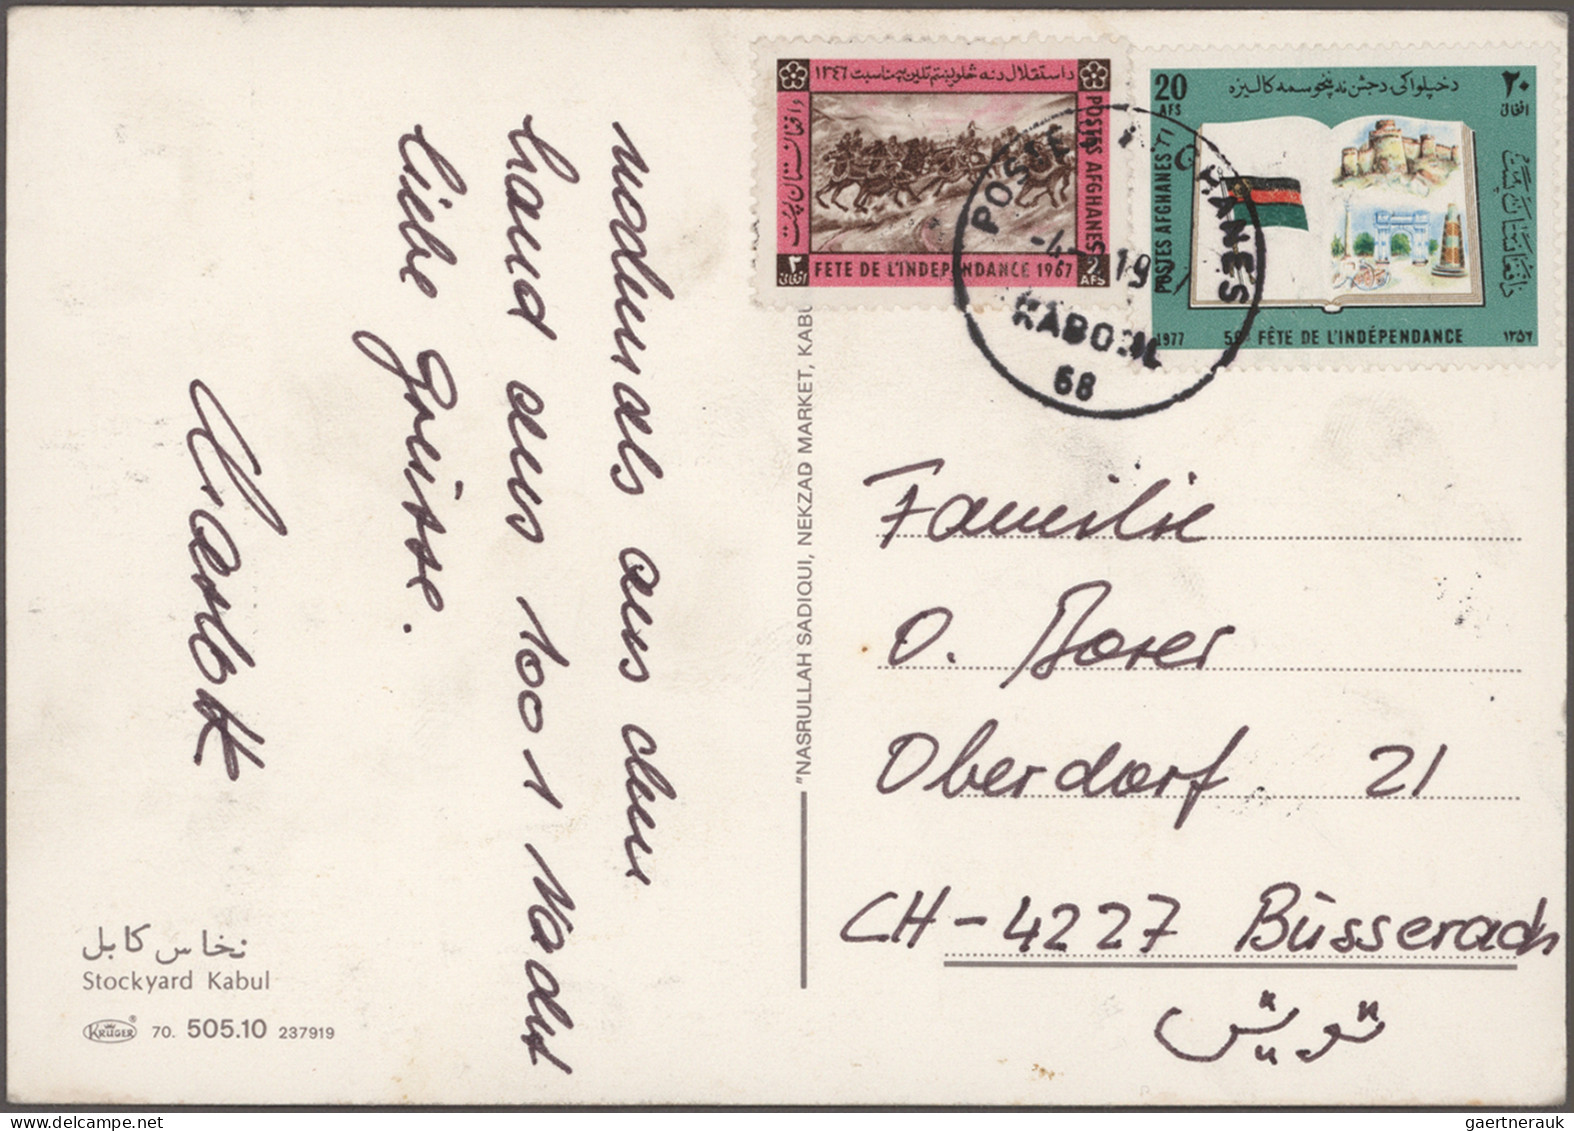 nochmals aus dem
Land aus 1001 Nacht
liebe Grüsse.
نخاس کابل
Stockyard Kabul
KRÜGER ® 70. 505.10 237919
"NASRULLAH SADIQUI, NEKZAD MARKET, KABU
د استقلال د نه څلویښتم تلین په مناسبت ۱۳۴۶
د افغانستان پست
POSTES AFGHANES
۲ افغانی
FÊTE DE L'INDÉPENDANCE 1967
2 AFS
20 AFS
د خپلواکی د جشن نه پنځوسمه کالیزه
۲۰ افغانی
POSTES AFGHANES
د افغانستان پست
1977
FÊTE DE L'INDÉPENDANCE
۱۳۵۶
KABOUL
68
Familie
O. Borer
Oberdorf 21
CH-4227 Büsserach